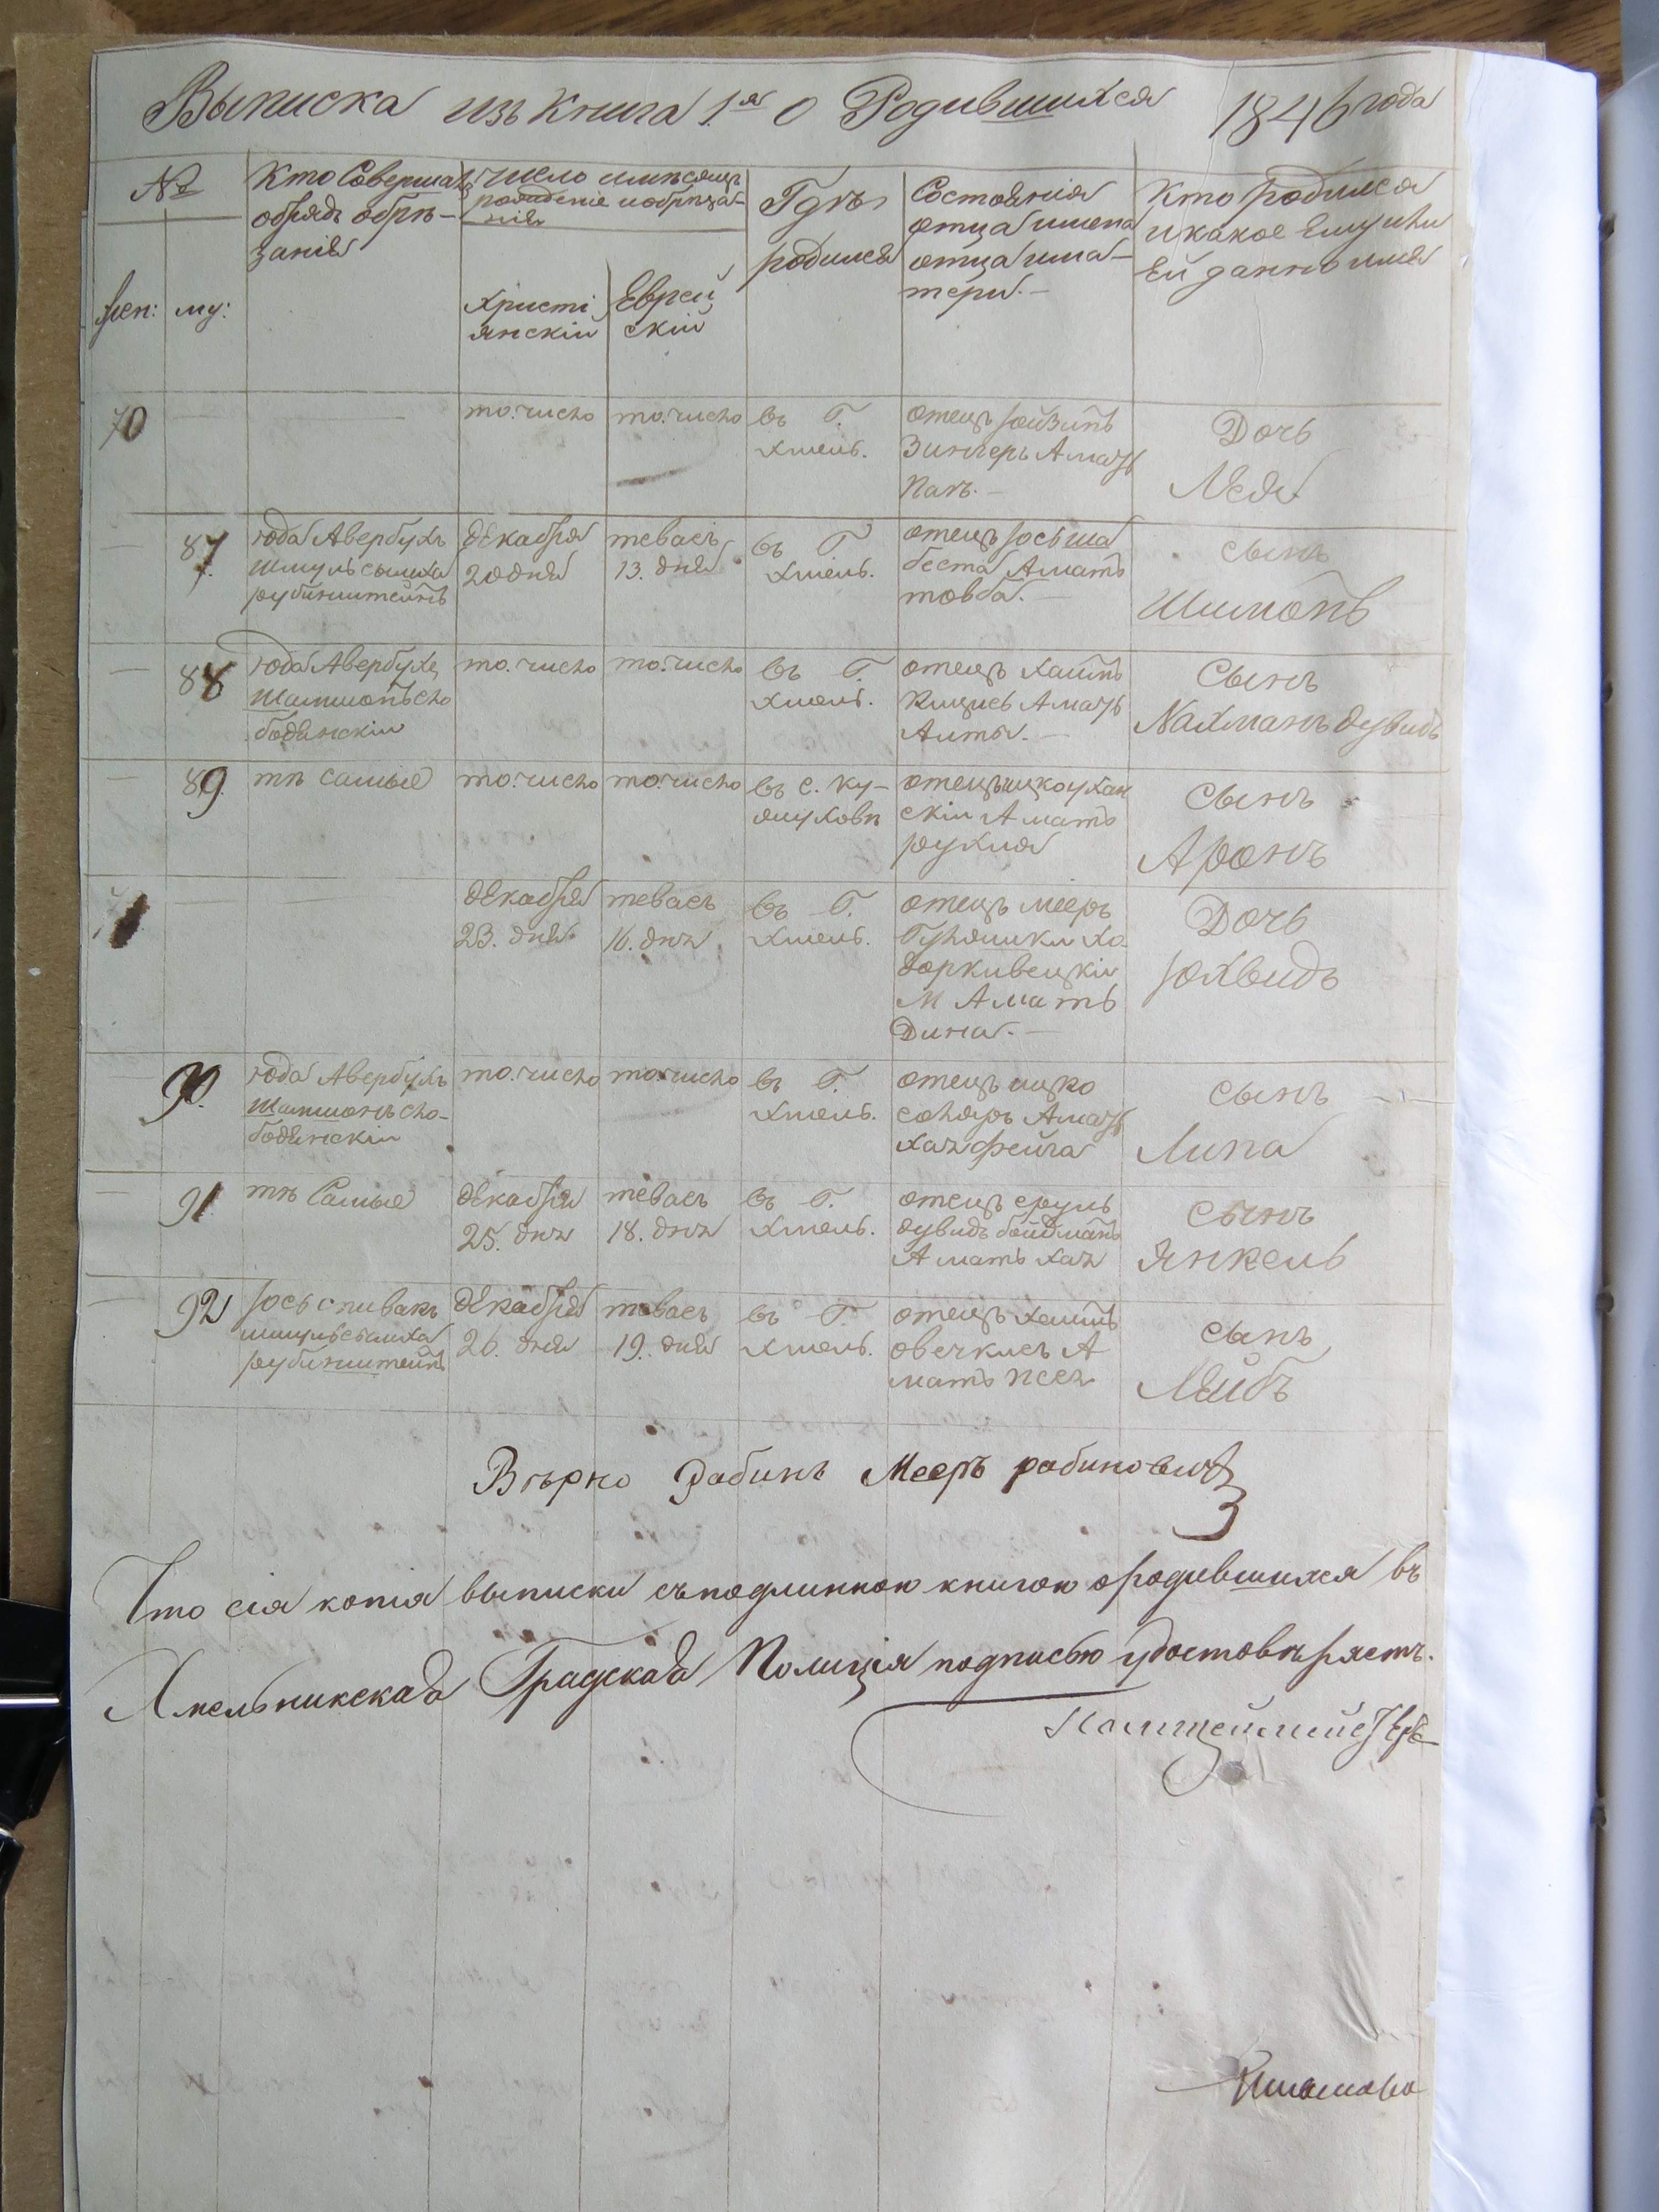 Выписка изъ Книга 1.я о Родившихся 1846 года
№
Кто Совершалъ
обрядъ обрѣ-
занія
число имѣсяцъ
рожденіе иобрѣза-
нія
Гдѣ
родился
Состоянія
отца имена
отца има-
тери.-
Кто родился
икакое Ему или
Ей данно имя
жен: му:
Христі
янскіи
Еврей
скій
70
то.число
то.число
въ Г.
Хмель.
отецъ
Зингеръ Амать
Дочь
Лея
87.
юда Авербухъ
Шмуль
рубинштейнъ
декабря
20 дня
тевасъ
13. дня
въ Г.
Хмель.
отецъ Іось ша
беста Амать
товба.-
сынъ
Шимонъ
88
юда Авербухъ
Шамшонъ сло
бодянскіи
то.число
то.число
въ Г.
Хмель.
отецъ Хаимъ
Амать
Сынъ
Нахманъ дувидъ
89.
тѣ самые
то.число
то.число
въ с. Ку-
отецъ ицко ухан
скіи Амать
рухля
Сынъ
Аронъ
декабря
23. дня
тевасъ
16. дня
въ Г.
Хмель.
отецъ Мееръ
М Амать
Дина.-
Дочь
Юхвидъ
90.
юда Авербухъ
Шамшонъ сло-
бодянскіи
то.число
то.число
въ Г.
Хмель.
отецъ ицко
Амать
Хая фейга
сынъ
Липа
91
тѣ Самые
декабря
25. дня
тевасъ
18. дня
въ Г.
Хмель.
отецъ сруль
дувидъ
Амать хая
сынъ
Янкель
92
Іось спивакъ
рубинштейнъ
декабря
26. дня
тевасъ
19. дня
въ Г.
Хмель.
отецъ Хаимъ
А
мать
сынъ
Лейбъ
Вѣрно Рабинъ Мееръ рабиновичъ
Что сія копія выписки съподлинною книгою ородившихся въ
Хмельникская Градская Полиція подписью удостовѣряетъ.
Полицеймейстеръ